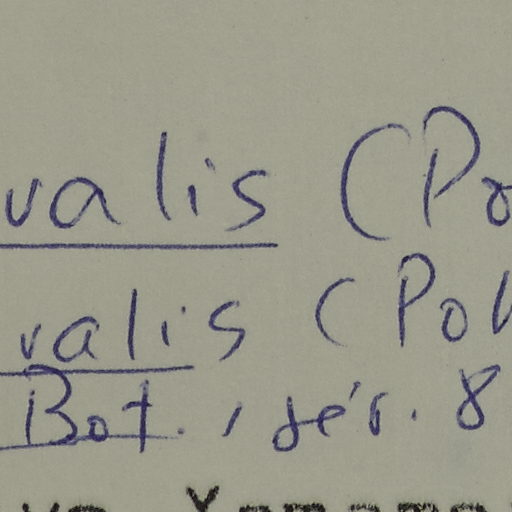 valis (Po
valis (Pol
Bot., sér. 8